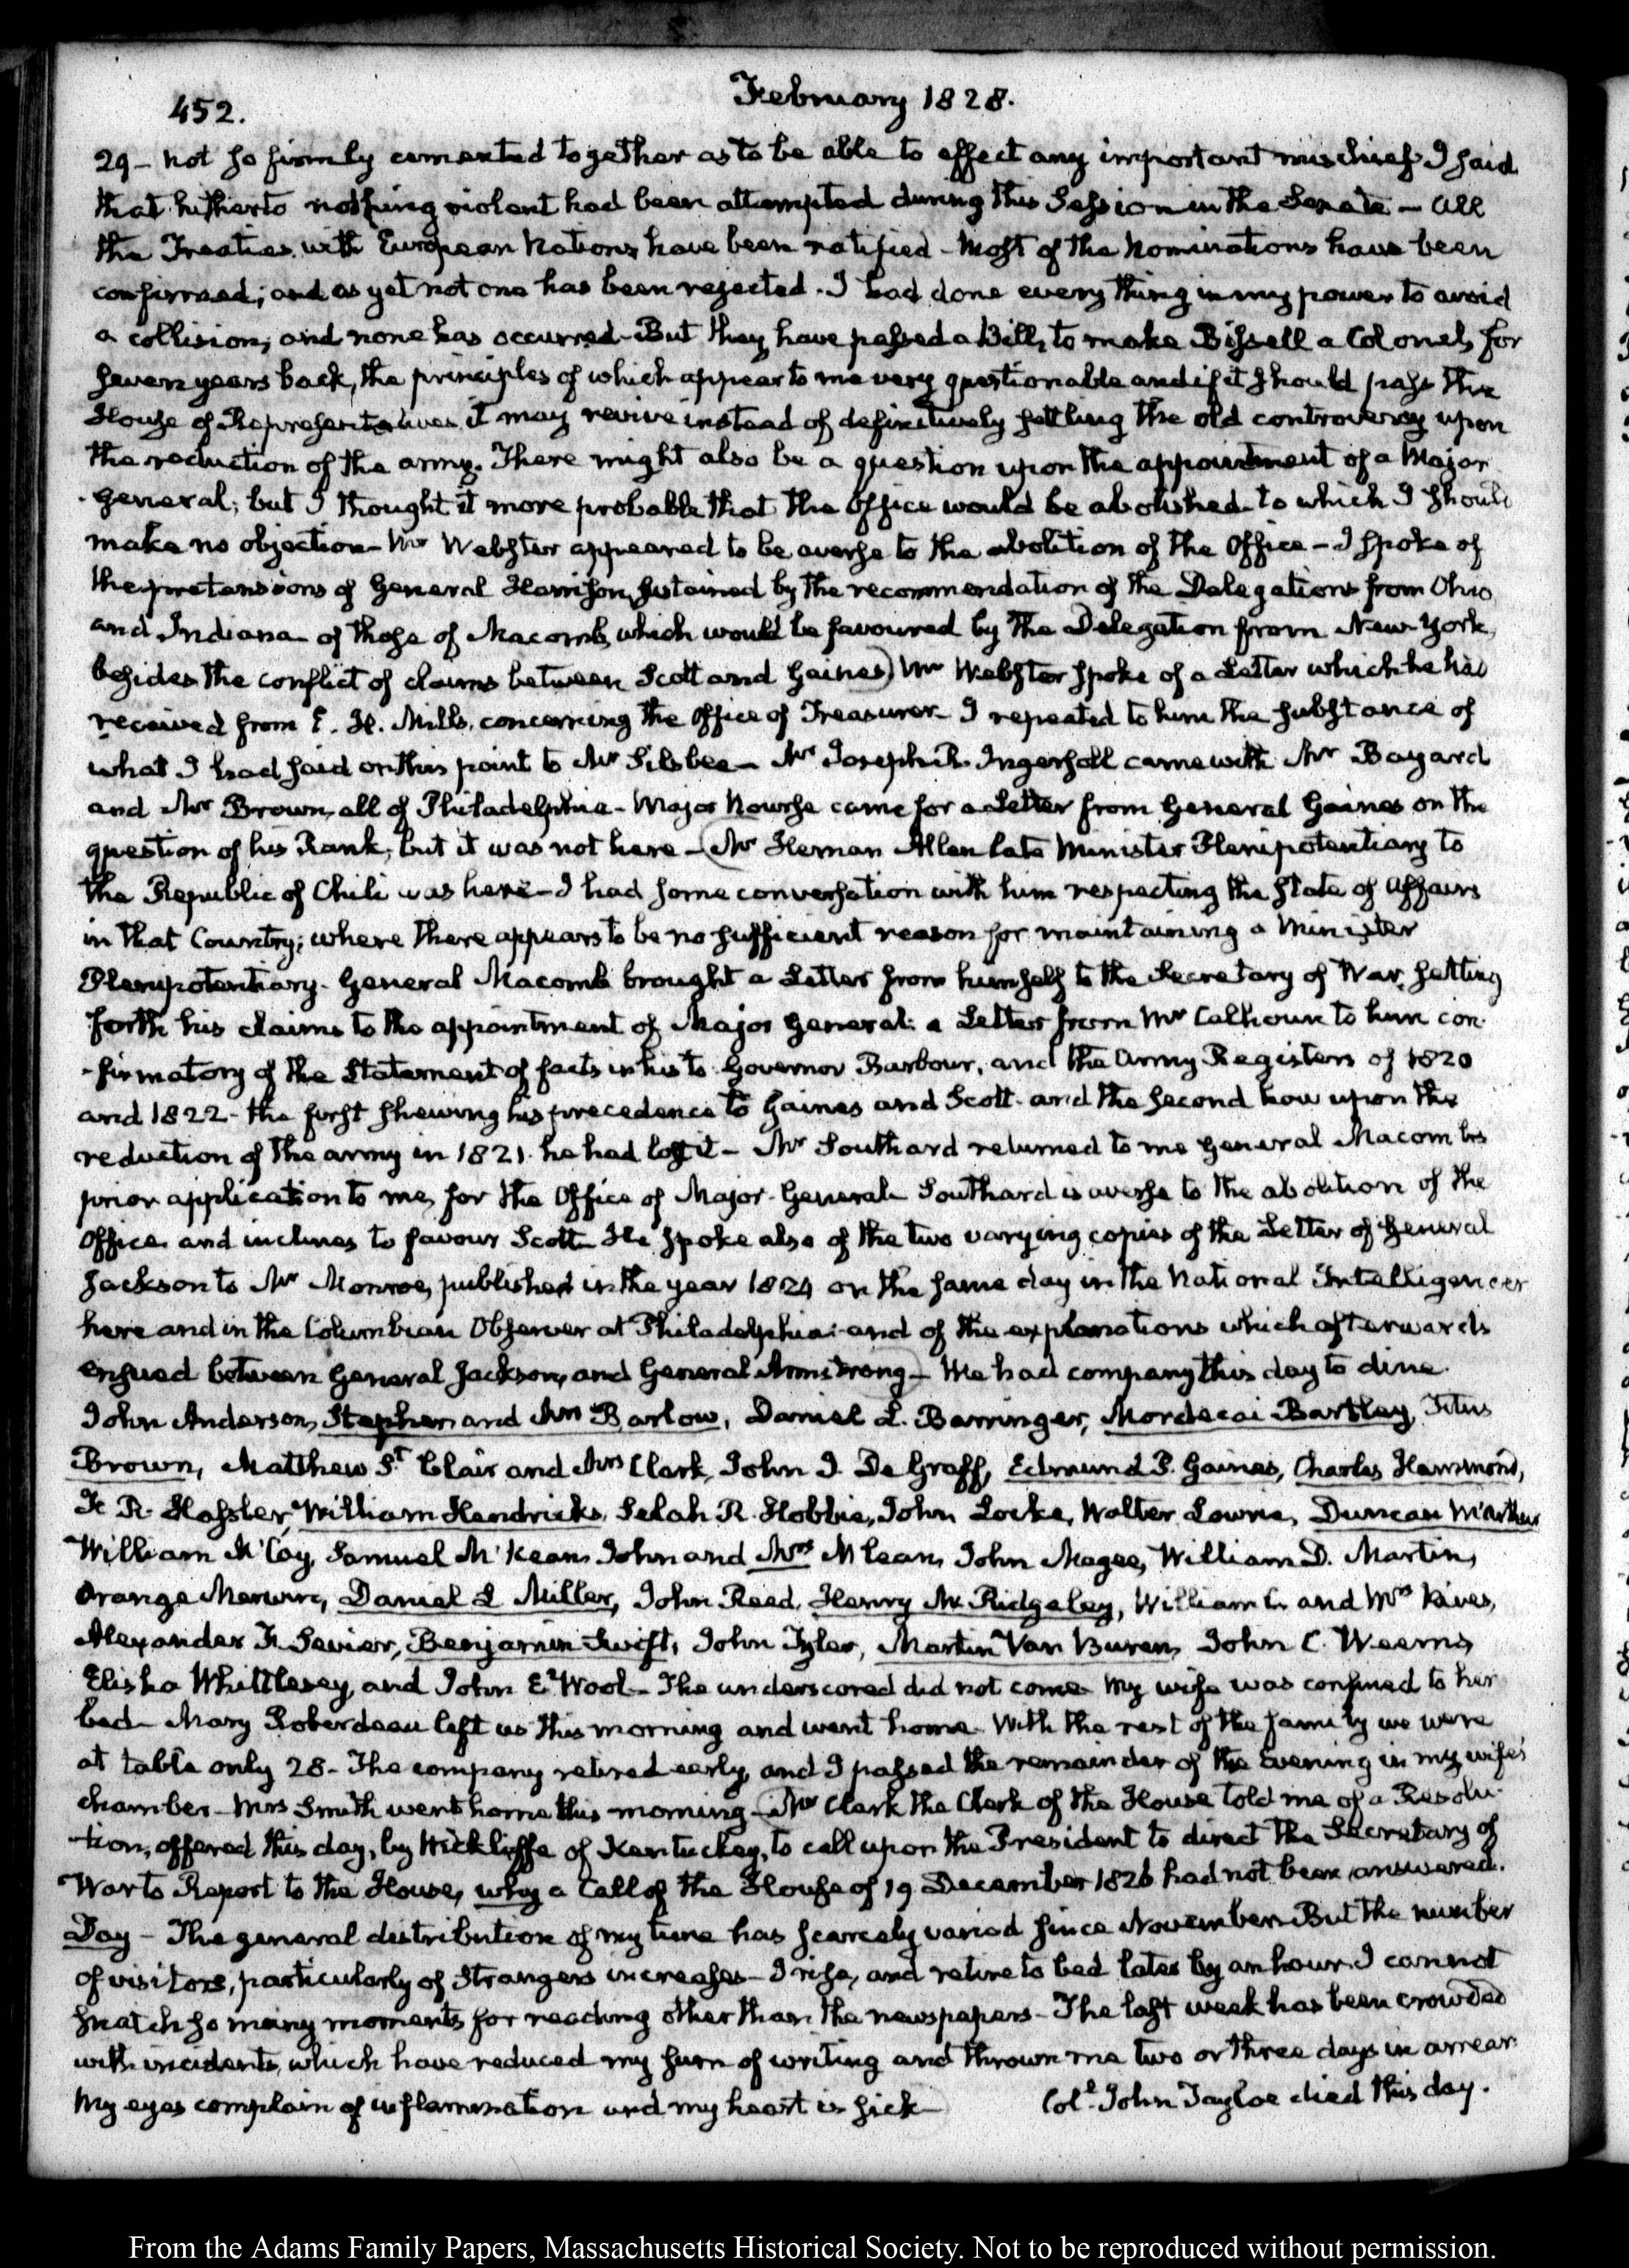 452. February 1828.
29 – not so firmly cemented together as to be able to effect any important mischief. I said
that hitherto nothing violent had been attempted during this Session in the Senate – All
the Treaties with European Nations have been ratified – Most of the Nominations have been
confirmed; and as yet not one has been rejected. I had done every thing in my power to avoid
a collision, and none has occurred – But they have passed a Bill, to make Bissell a Colonel, for
seven years back, the principles of which appear to me very questionable and if it should pass the
House of Representatives, it may revive instead of definitively settling the old controversy upon
the reduction of the army. There might also be a question upon the appointment of a Major
General; but I thought it more probable that the Office would be abolished – to which I should
make no objection – Mr Webster appeared to be averse to the abolition of the Office – I spoke of
the pretensions of General Harrison, sustained by the recommendation of the Delegations from Ohio
and Indiana – of those of Macomb, which would be favoured by the Delegation from New-York,
besides the conflict of claims between Scott and Gaines) Mr Webster spoke of a Letter which he had
received from E. H. Mills, concerning the Office of Treasurer – I repeated to him the substance of
what I had said on this point to Mr Silsbee – Mr Joseph R. Ingersoll came with Mr Bayard
and Mr Brown, all of Philadelphia – Major Nourse came for a Letter from General Gaines on the
question of his Rank; but it was not here – (Mr Heman Allen late Minister Plenipotentiary to
the Republic of Chili was here – I had some conversation with him respecting the State of Affairs
in that Country; where there appears to be no sufficient reason for maintaining a Minister
Plenipotentiary – General Macomb brought a Letter from himself to the Secretary of War, setting
forth his claims to the appointment of Major General: a Letter from Mr Calhoun to him con-
-firmatory of the Statement of facts in his to Governor Barbour, and the Army Registers of 1820
and 1822 – the first shewing his precedence to Gaines and Scott – and the second how upon the
reduction of the army in 1821 he had lost it – Mr Southard returned to me General Macomb's
prior application to me, for the Office of Major-General – Southard is averse to the abolition of the
Office and inclines to favour Scott – He spoke also of the two varying copies of the Letter of General
Jackson to Mr Monroe, published in the year 1824 on the same day in the National Intelligencer
here and in the Columbian Observer at Philadelphia: and of the explanations which afterwards
ensued between General Jackson, and General Armstrong – We had company this day to dine.
John Anderson, Stephen and Mrs Barlow, Daniel L. Barringer, Mordecai Bartley, Titus
Brown, Matthew St Clair and Mrs Clark, John I. De Graff, Edmund P. Gaines, Charles Hammond,
F. R. Hassler, William Hendricks, Selah R. Hobbie, John Locke, Walter Lowrie, Duncan McArthur
William McCoy, Samuel McKean, John and Mrs McLean, John Magee, William D. Martin,
Orange Merwin, Daniel L Miller, John Reed, Henry M. Ridgeley, William C. and Mrs Rives,
Alexander H. Sevier, Benjamin Swift, John Tyler, Martin Van Buren, John C. Weems,
Elisha Whittlesey, and John E. Wool – The underscored did not come – My wife was confined to her
bed – Mary Roberdeau left us this morning and went home – With the rest of the family we were
at table only 28 – The company retired early, and I passed the remainder of the Evening in my wife's
chamber – Mrs Smith went home this morning – (Mr Clark the Clerk of the House told me of a Resolu-
-tion, offered this day, by Wickliffe of Kentuckey, to call upon the President to direct the Secretary of
War to Report to the House, why a Call of the House of 19 December 1826 had not been answered.
Day – The general distribution of my time has scarcely varied since November – But the number
of visitors, particularly of Strangers increases – I rise, and retire to bed later by an hour. I cannot
snatch so many moments for reading other than the newspapers – The last week has been crowded
with incidents, which have reduced my sum of writing and thrown me two or three days in arrear.
My eyes complain of inflammation and my heart is sick – Col. John Tayloe died this day.
From the Adams Family Papers, Massachusetts Historical Society. Not to be reproduced without permission.